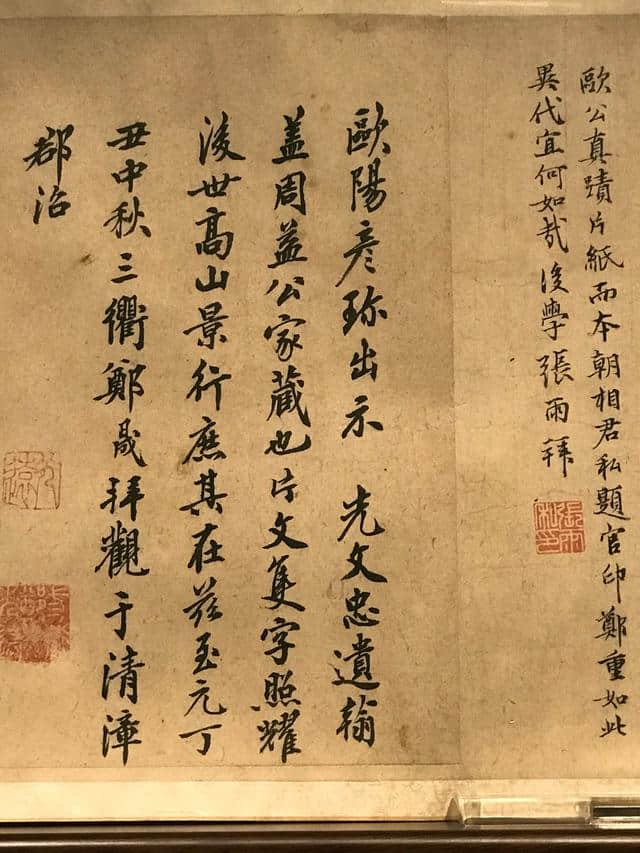 歐公真蹟片紙而本朝相君私題官印鄭重如此
異代宜何如哉後學張雨拜
張雨私印
歐陽彥珎出示 先文忠遺翰
盖周益公家藏也片文隻字照耀
後世高山景行庶其在茲至元丁
丑中秋三衢鄭晟拜觀于清漳
郡治